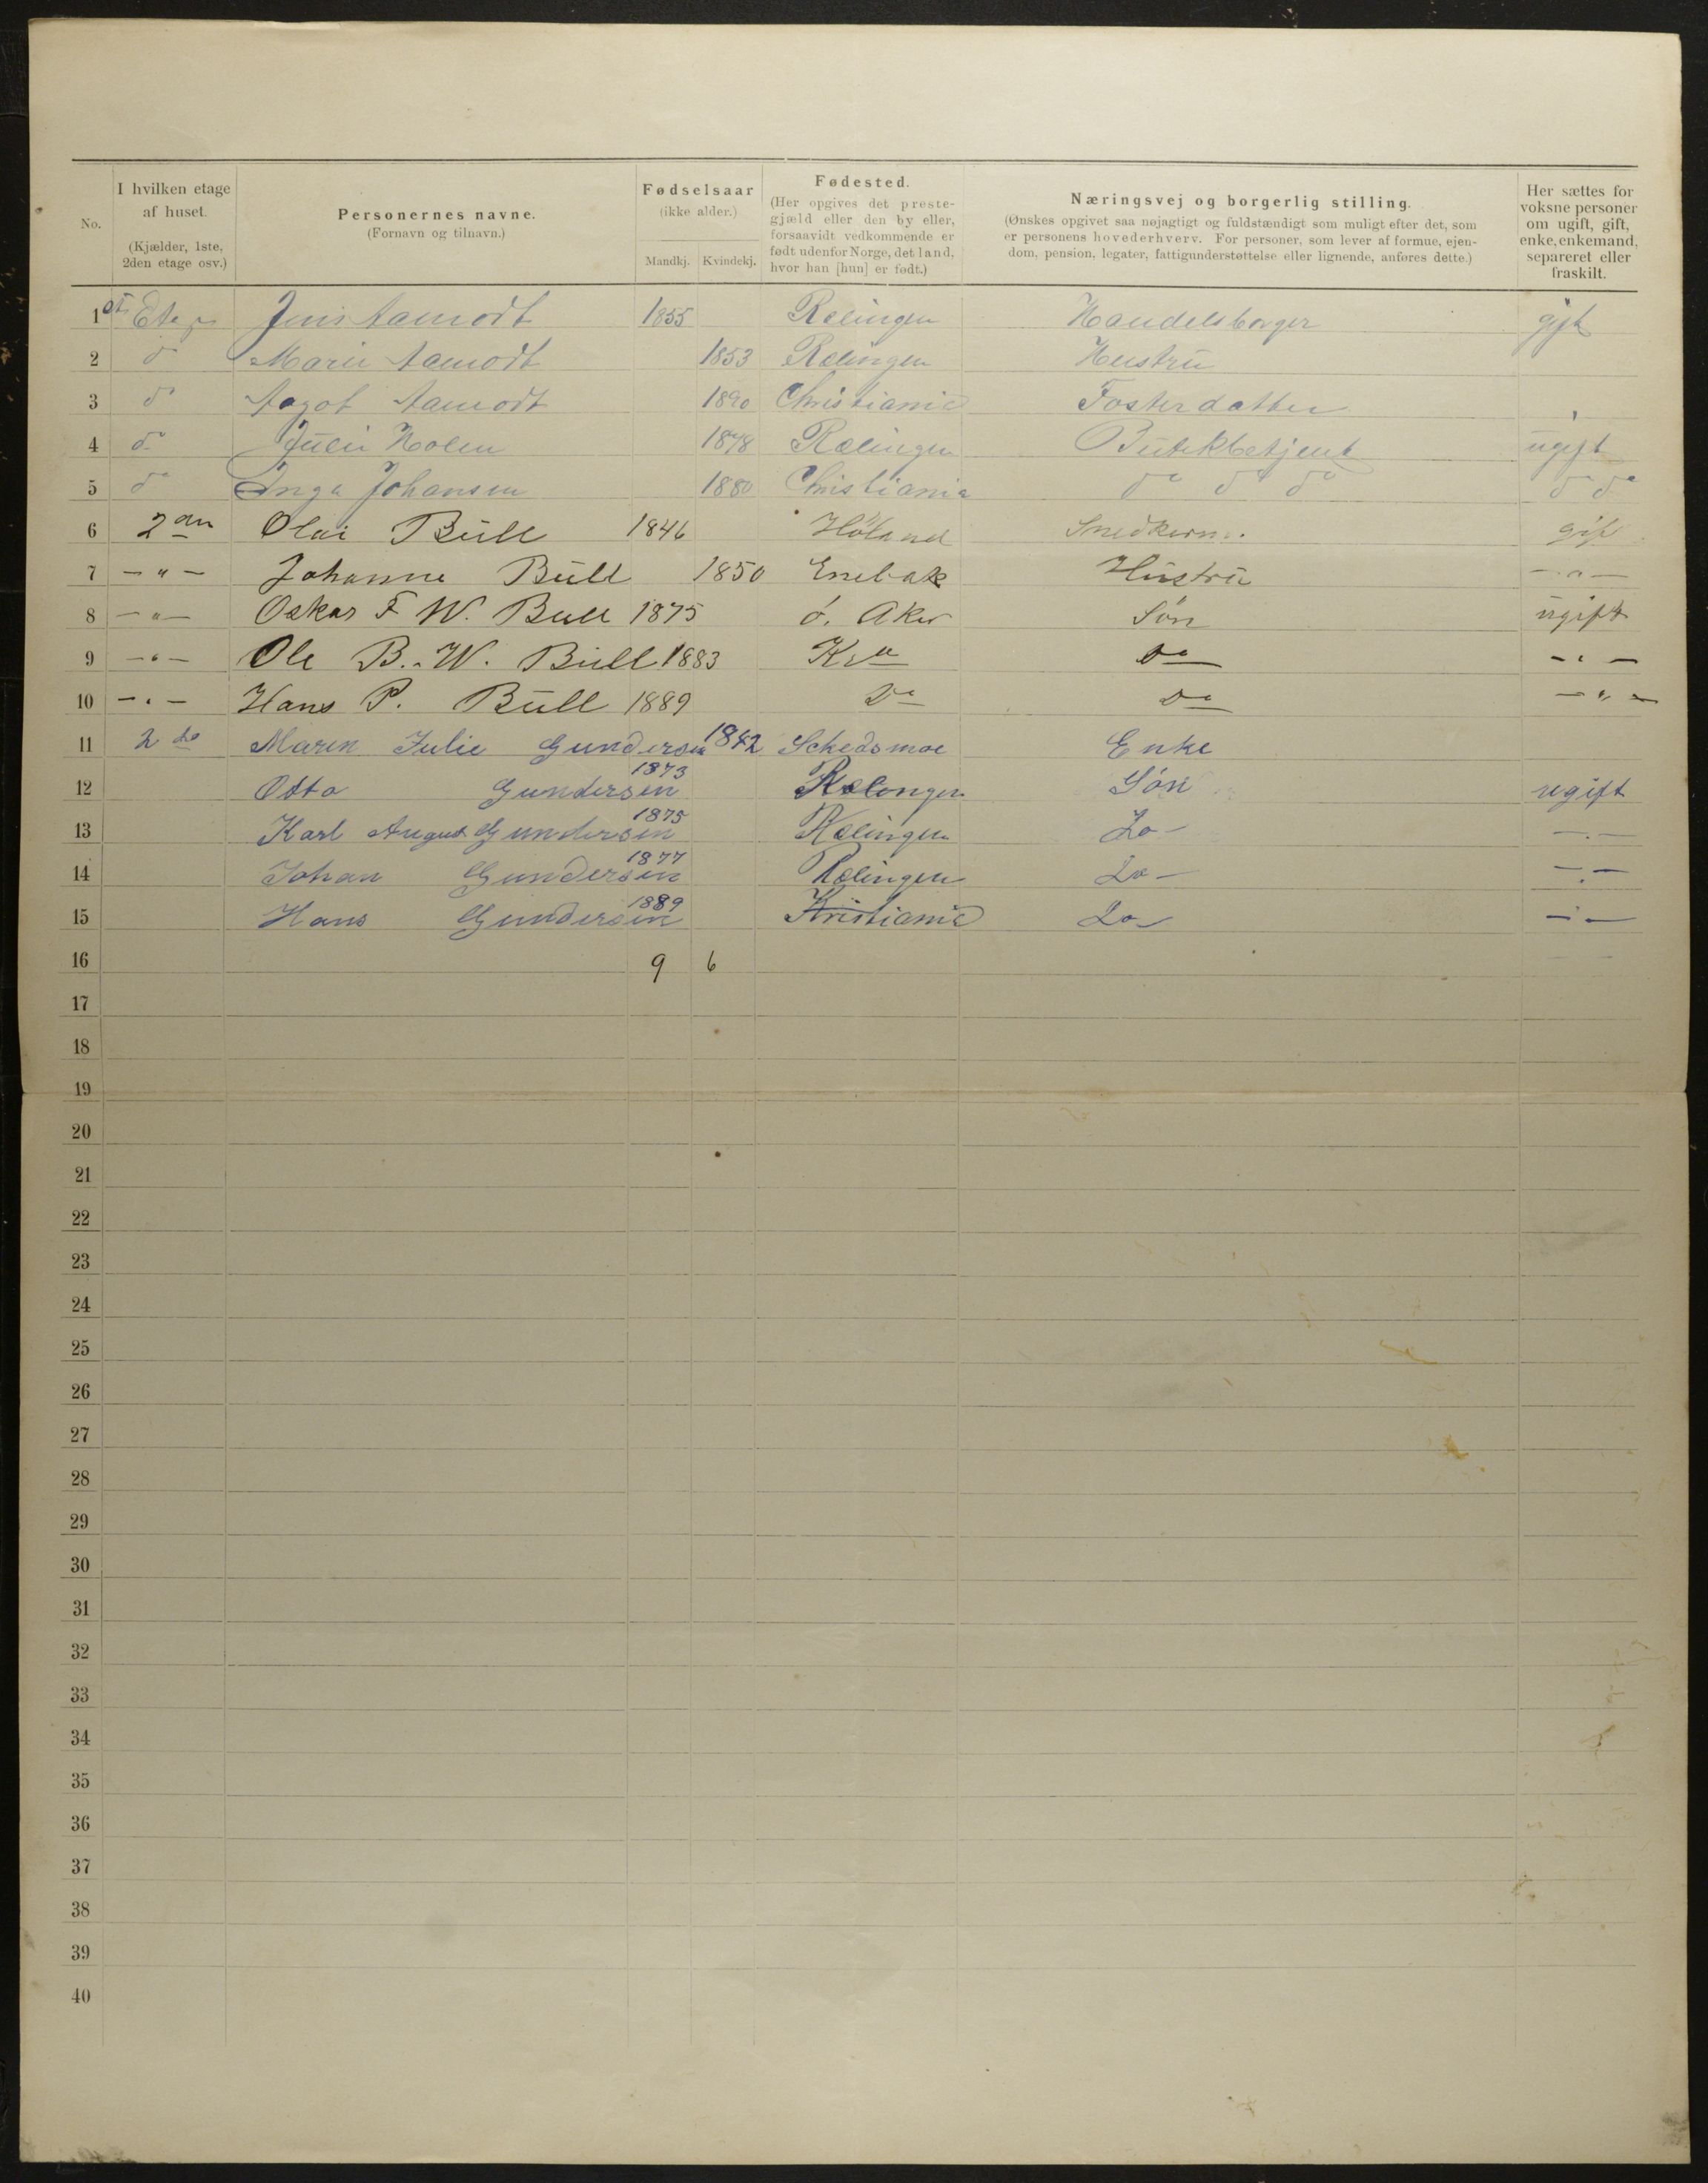 No.
I hvilken etage af huset. (Kjælder, 1ste, 2den etage osv.)
Personernes navne. (Fornavn og tilnavn.)
Fødselsaar (ikke alder.) Mandkj. Kvindekj.
Fødested. (Her opgives det prestegjæld eller den by eller, forsaavidt vedkommende er født udenfor Norge, det land, hvor han [hun] er født.)
Næringsvej og borgerlig stilling. (Ønskes opgivet saa nøjagtigt og fuldstændigt som muligt efter det, som er personens hovederhverv. For personer, som lever af formue, ejendom, pension, legater, fattigunderstøttelse eller lignende, anføres dette.)
Her sættes for voksne personer om ugift, gift, enke, enkemand, separeret eller fraskilt.
1 st Etage Jens Aamodt 1855 Rælingen Handelsborger gift
2 do Marie Aamodt 1853 Rælingen Hustru
3 do Aagot Aamodt 1890 Christiania Fosterdatter
4 do Julie Holen 1878 Rælingen Butikbetjent ugift
5 do Inga Johansen 1880 Christiania do do do do do
6 2den Olai Büll 1846 Høland Snedkerm. gift
7 — " — Johanne Büll 1850 Enebak Hüstrü — " —
8 — " — Oskar F W. Bull 1875 ø. Aker Søn ügift
9 — " — Ole B. W. Büll 1883 Kra Do — " —
10 — " — Hans P. Büll 1889 Do Do — " —
11 2de Maren Julie Gundersen 1842 Schedsmoe Enke
12 Otto Gundersen 1873 Rælingen Søn ugift
13 Karl August Gundersen 1875 Rælingen Do — — . —
14 Johan Gundersen 1877 Rælingen Do — — . —
15 Hans Gundersen 1889 Kristiania Do — — . —
16 9 6
17
18
19
20
21
22
23
24
25
26
27
28
29
30
31
32
33
34
35
36
37
38
39
40